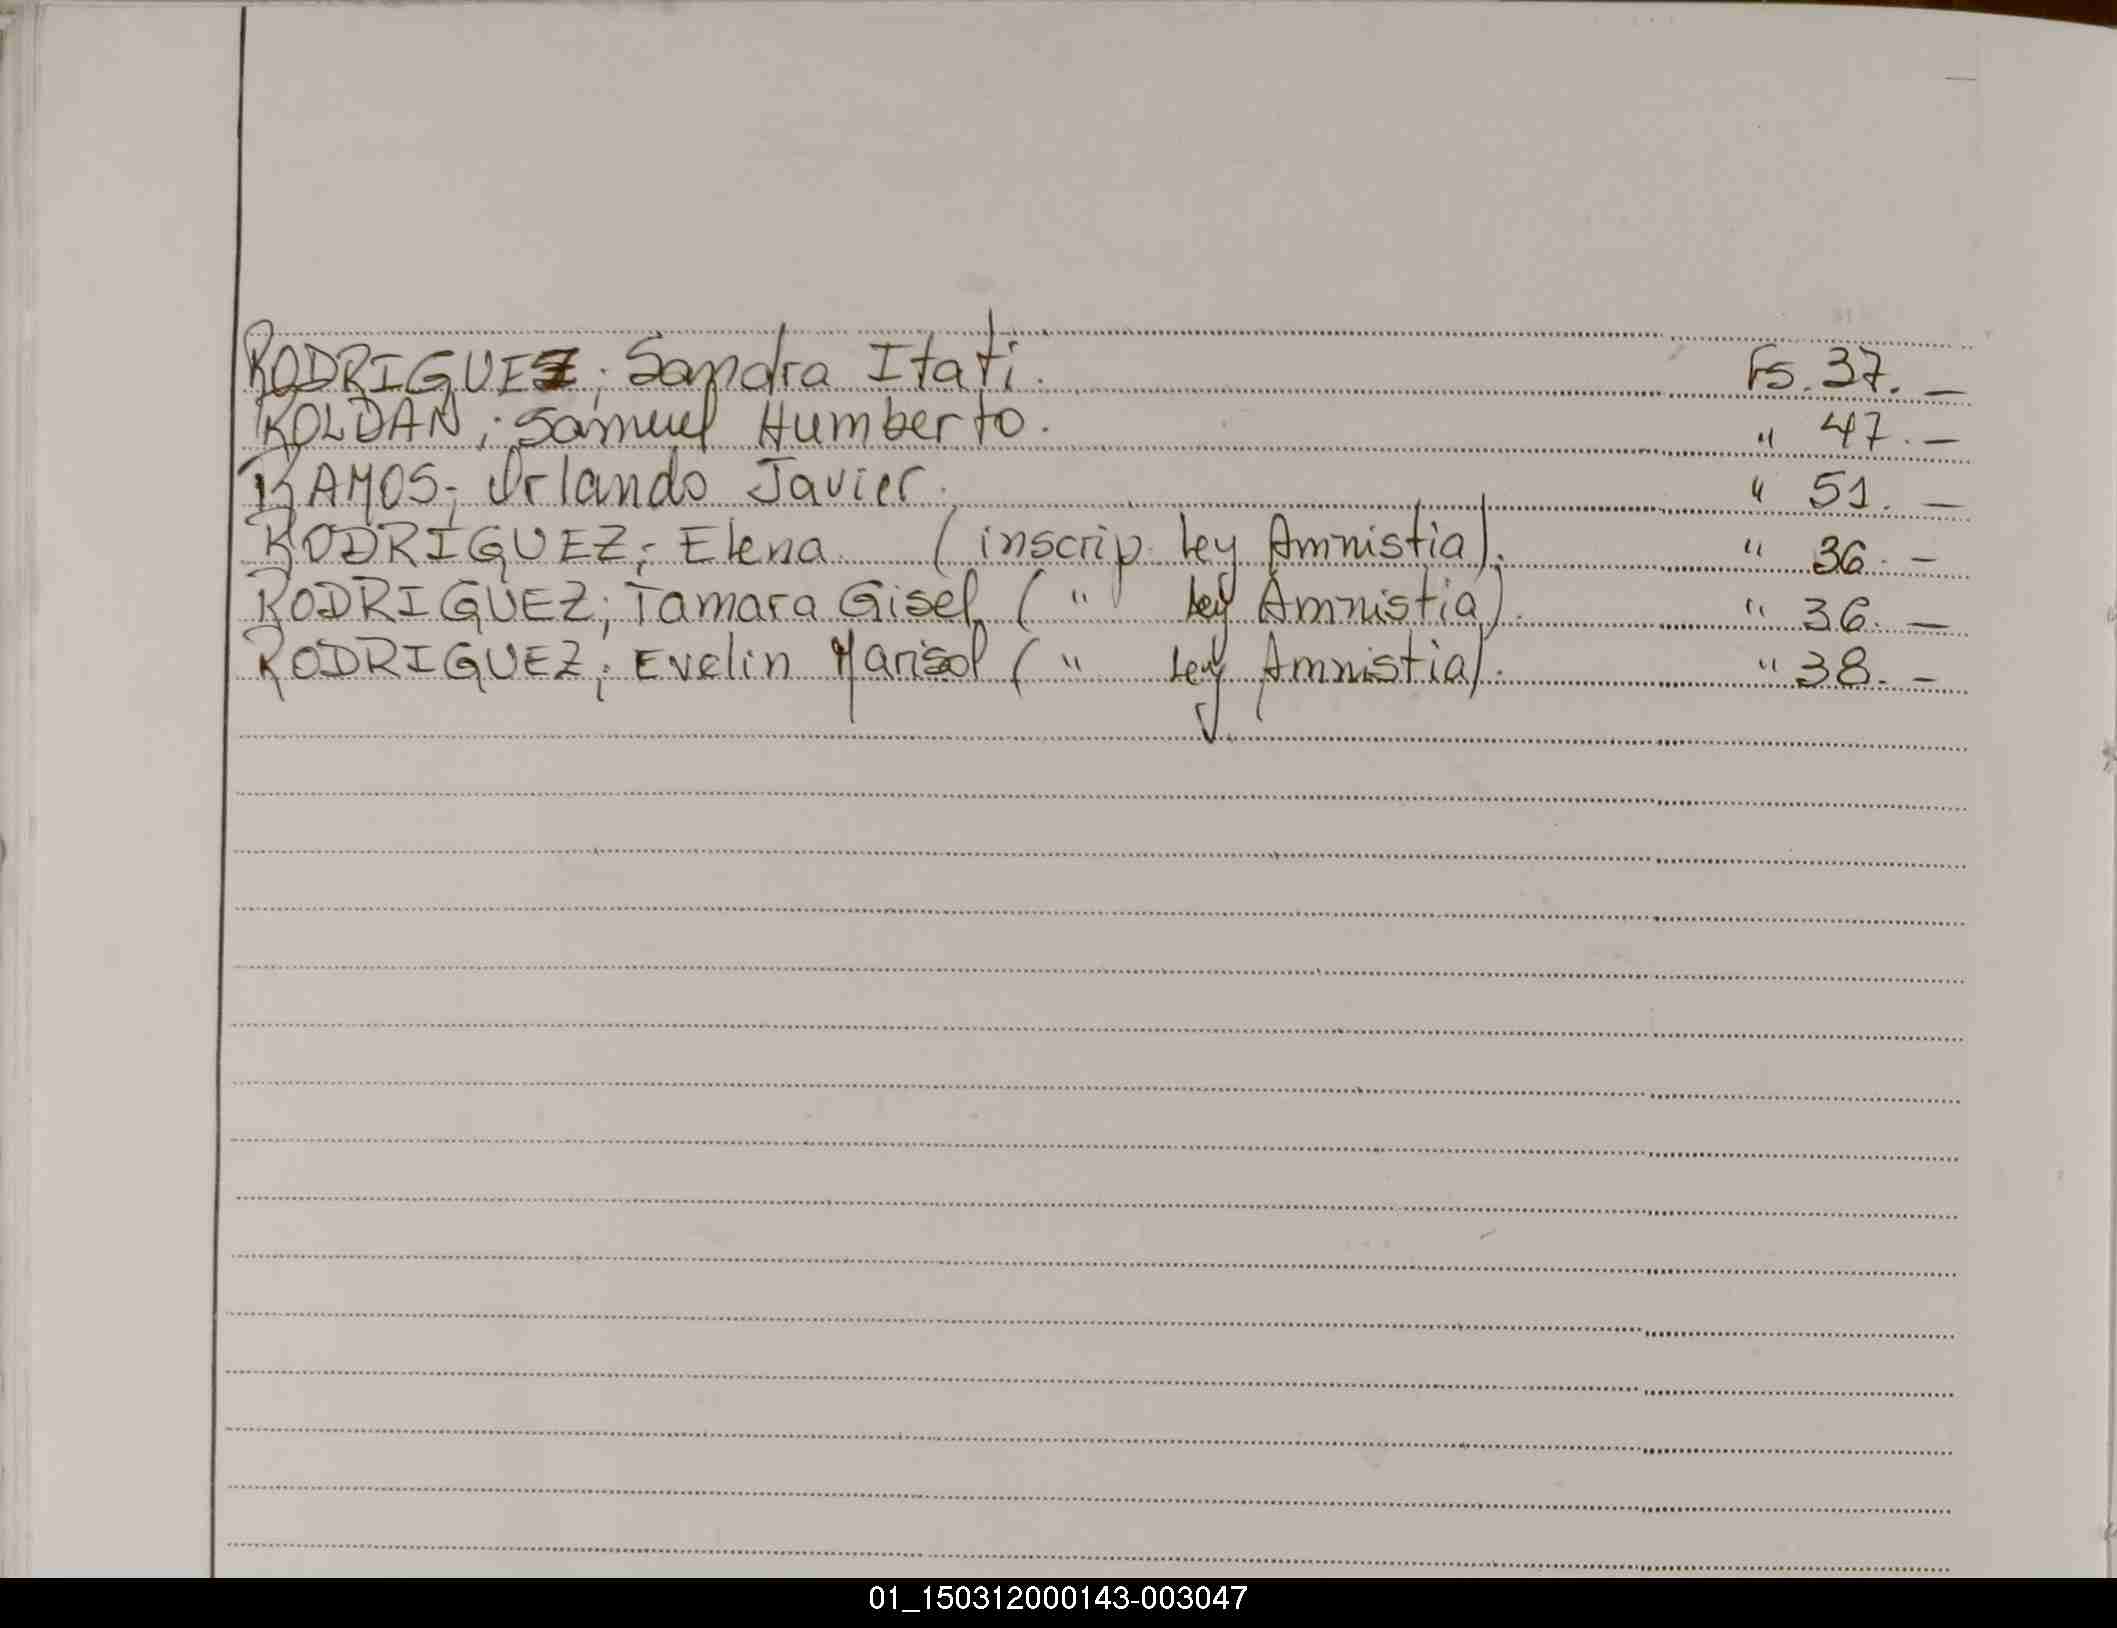 RODRIGUEZ; Sandra Itatí. Fs. 37. —
ROLDAN; Samuel Humberto. " 47. —
RAMOS; Orlando Javier. " 51. —
RODRIGUEZ; Elena (inscrip. Ley Amnistia). " 36. —
RODRIGUEZ; Tamara Gisel (" Ley Amnistia). " 36. —
RODRIGUEZ; Evelin Marisol (" Ley Amnistia). " 38. —
01_150312000143-003047